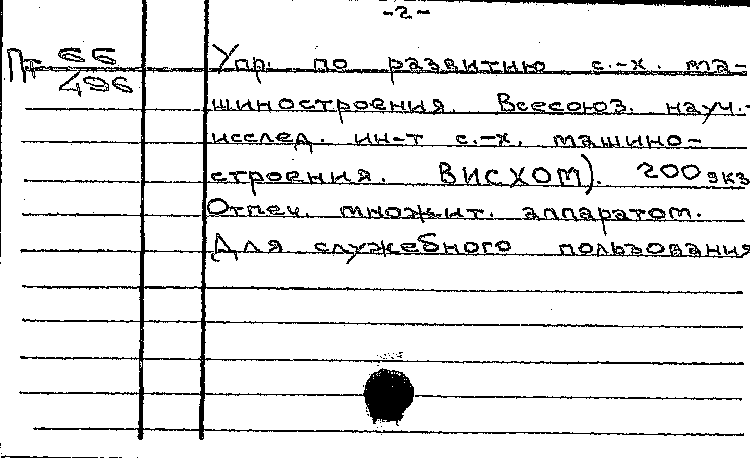 -2-
Пт 66
496
Упр. по развитию с.-х. ма-
шиностроения. Всесоюз. науч.-
исслед. ин-т с.-х. машино-
строения. ВИСХОМ). 200 экз
Отпеч. множит. аппаратом.
Для служебного пользования